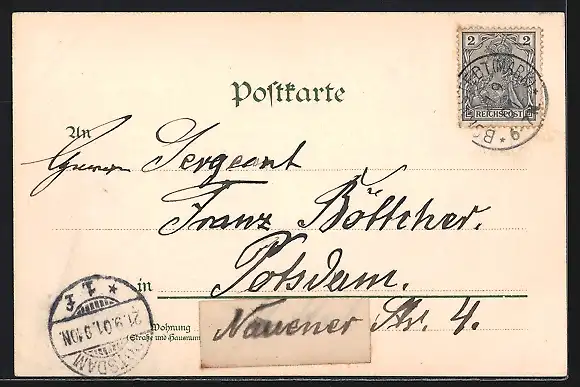 2
REICHSPOST
Postkarte
An
Sergeant
Franz Böttcher.
in Potsdam.
Wohnung
(Straße und Hausnummer)
Nauener Str. 4.
POTSDAM
21.9.01.9-10N.
* 1. f